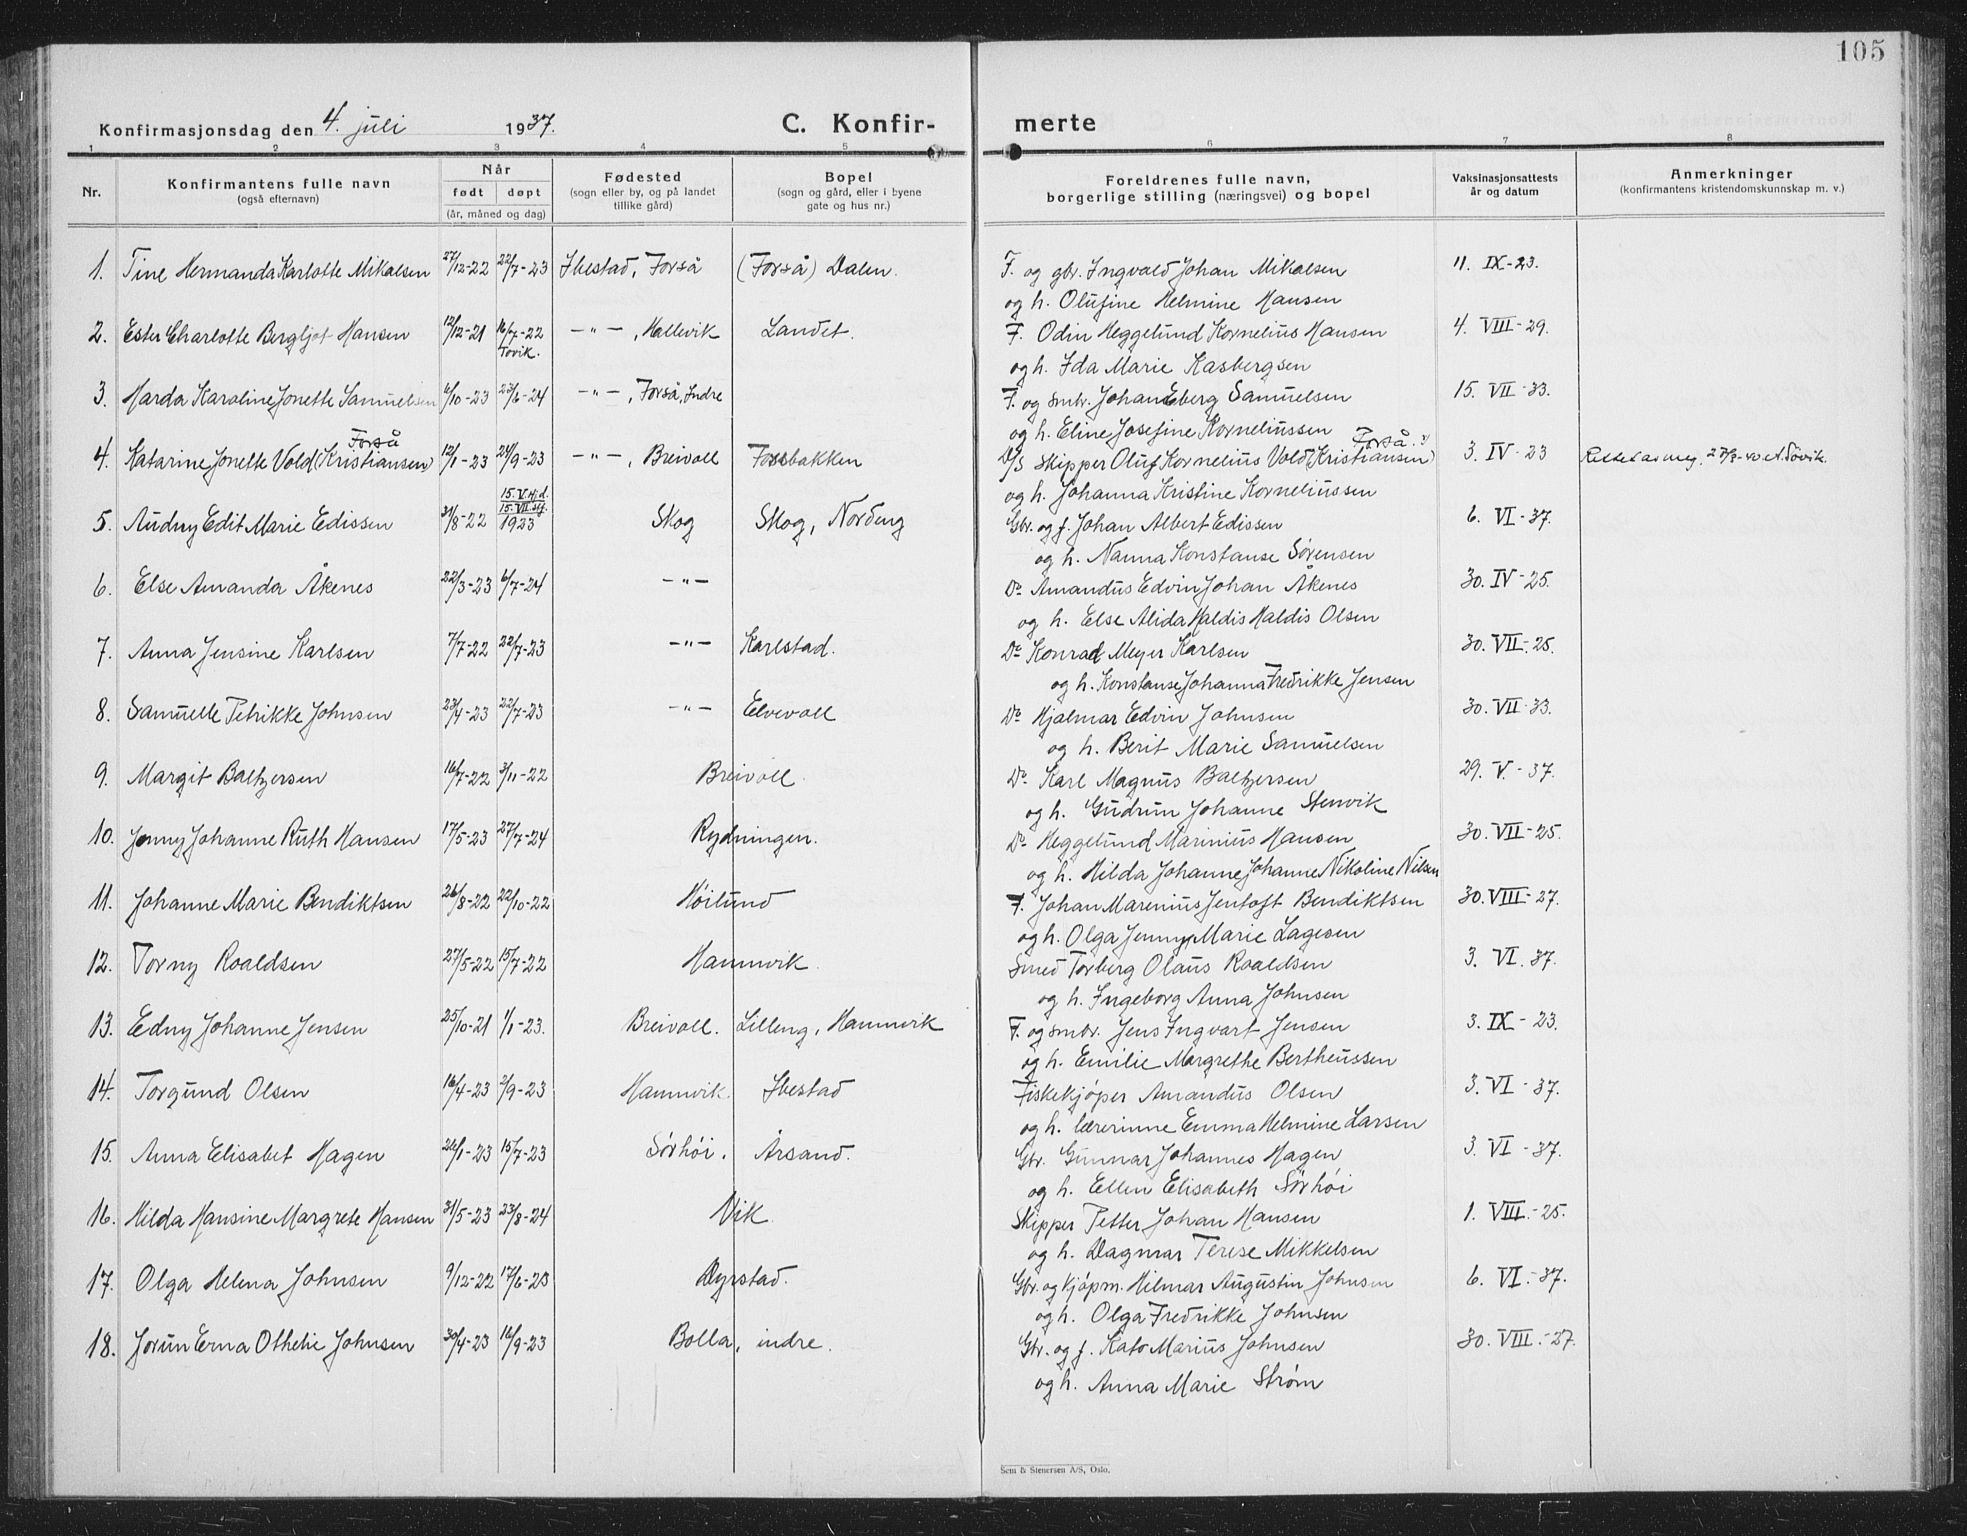 105
Konfirmasjonsdag den 4. juli 1937. C. Konfir- merte
1 2 3 4 5 6 7 8
Nr. Konfirmantens fulle navn (også efternavn) Når født døpt (år, måned og dag) Fødested (sogn eller by, og på landet tillike gård) Bopel (sogn og gård, eller i byene gate og hus nr.) Foreldrenes fulle navn, borgerlige stilling (næringsvei) og bopel Vaksinasjonsattests år og datum Anmerkninger (konfirmantens kristendomskunnskap m. v.)
1. Tine Hermanda Karlotte Mikalsen 27/12-22 22/7-23 Ibestad, Forså (Forså) Dalen. F. og gbr. Ingvald Johan Mikalsen 11. IX-23.
og h. Olufine Helmine Hansen
2. Ester Charlotte Bergljot Hansen 12/12-21 16/7-22 Tovik. -"-, Hallevik Landet. F. Odin Heggelund Kornelius Hansen 4. VIII-29.
og h. Ida Marie Kasbergsen
3. Harda Karoline Jonette Samuelsen 6/10-23 23/6-24 -"-, Forså, Indre F. og smbr. Johan Eberg Samuelsen 15. VII-33.
og h. Eline Josefine Kornelinssen
4. Katarine Jonette Vold (Kristiansen) Forså 12/1-23 24/9-23 -"-, Breivoll Fossbakken D/S Skipper Oluf Kornelius Vold (Kristiansen) Forså 3. IV-23
og h. Johanna Kristine Kornelinssen
5. Audny Edit Marie Edissen 31/8-22 15.V.Hj.d. 15.VII.stf. 1923 Skog Skog, Nordeng Gbr. og f. Johan Albert Edissen 6. VI-37.
og h. Nanna Konstanse Sørensen
6. Else Amanda Åkenes 22/3-23 6/7-24 -"- Do. Amandus Edvin Johan Åkenes 30. IV-25.
og h. Else Alida Haldis Haldis Olsen
7. Anna Jensine Karlsen 7/7-22 22/7-23 -"- Karlstad. Do. Konrad Meyer Karlsen 30. VII-25.
og h. Konstanse Johanna Fredrikke Jensen
8. Samuelle Petrikke Johnsen 23/4-23 22/7-23 -"- Elvevoll Do. Hjalmar Edvin Johnsen 30. VII-33.
og h. Berit Marie Samuelsen
9. Margit Baltzersen 16/7-22 3/11-22 Breivoll. Do. Karl Magnus Baltzersen 29. V.-37.
og h. Gudrun Johanne Stenvik
10. Jenny Johanne Ruth Hansen 17/5-23 27/7-24 Rydningen. Do. Heggelund Marinius Hansen 30. VII-25.
og h. Hilda Johanne Johanne Nikoline Nilsen
11. Johanne Marie Bendiktsen 26/8-22 22/10-22 Høilund F. Johan Marenius Jentoft Bendiktsen 30. VIII-27.
og h. Olga Jenny Marie Lagesen
12. Torny Roaldsen 27/5-22 15/7-22 Hamnvik. Smed Torberg Olaus Roaldsen 3. VI.37.
og h. Ingeborg Anna Johnsen
13. Edny Johanne Jensen 25/10-21 1/1-23. Breivoll. Lilleng, Hamnvik F. og smbr. Jens Ingvart Jensen 3. IX-23.
og h. Emilie Margrethe Bertheussen
14. Torgund Olsen 16/4-23 2/9-23 Hamnvik. Ibestad Fiskekjøper Amandus Olsen 3. VI-37.
og h. lærerinne Emma Helmine Larsen
15. Anna Elisabet Hagen 26/1-23 15/7-23 Sørhøi. Årsand. Gbr. Gunnar Johannes Hagen 3. VI-37.
og h. Ellen Elisabeth Sørhøi
16. Hilda Hansine Margrete Hansen 31/5-23 23/8-24 Vik. Skipper Petter Johan Hansen 1. VIII.-25.
og h. Dagmar Terese Mikkelsen
17. Olga Helena Johnsen 9/12-22 17/6-23 Dyrstad. Gbr. og kjøpm. Hilmar Augustin Johnsen 6. VI.-37.
og h. Olga Fredrikke Johnsen
18. Jorun Erna Othelie Johnsen 30/4-23 16/9-23 Bolla, indre. Gbr. og f. Kato Marius Johnsen 30. VIII.-27.
og h. Anna Marie Strøm
Sem & Stenersen A/S, Oslo.